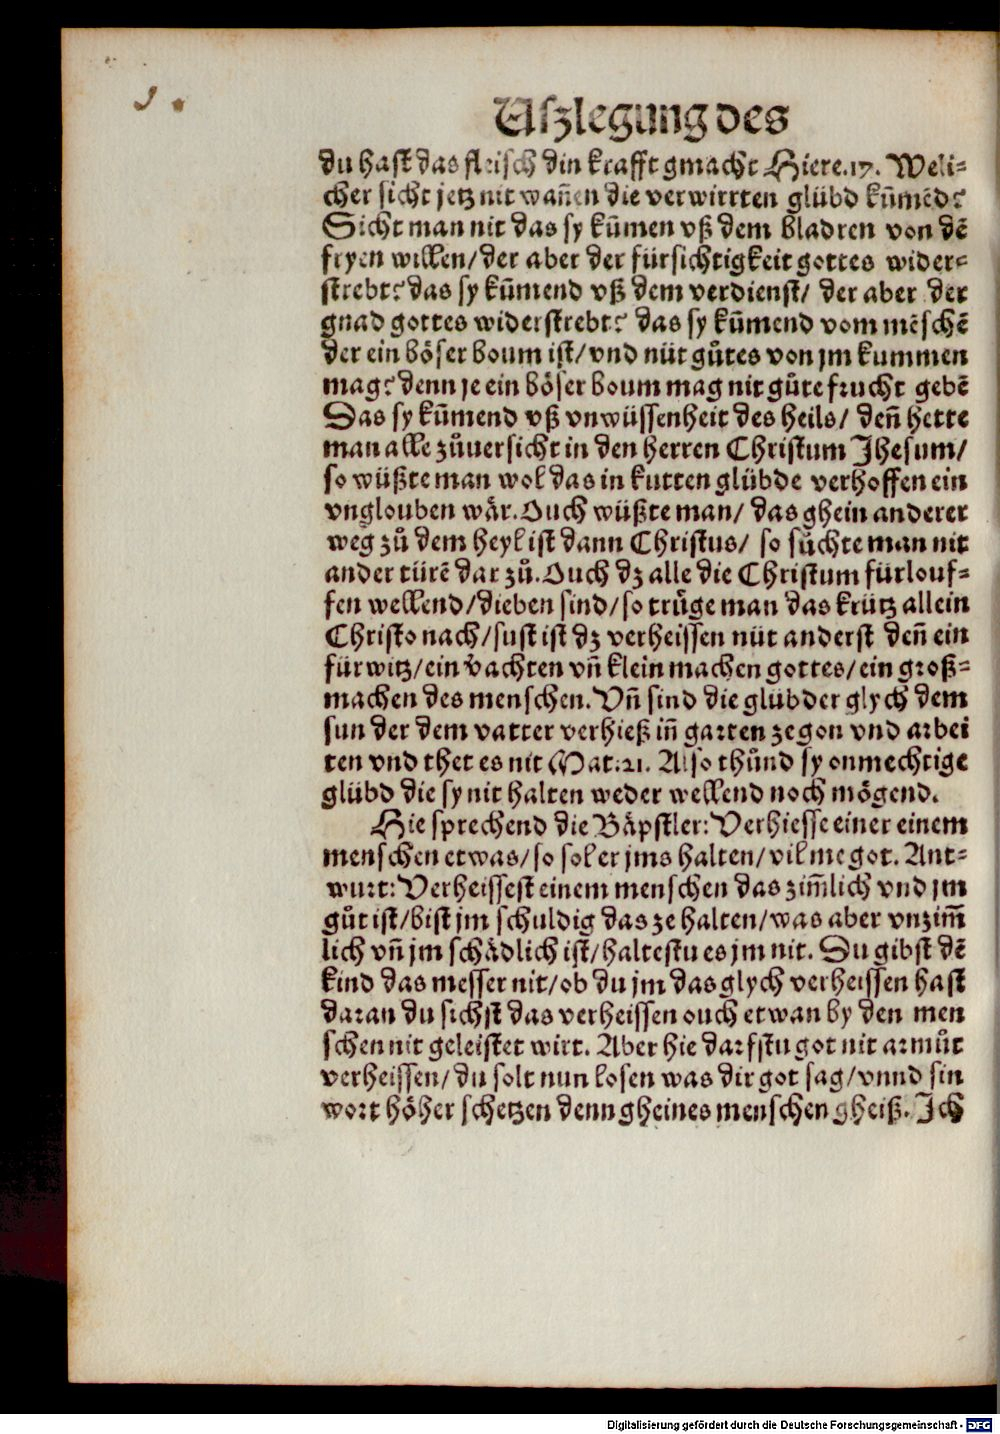 Uszlegung des
du hast das fleisch din krafft gmacht Hiere.17. Weli-
cher sicht jetz nit wañen die verwirrten glübd kūmēd?
Sicht man nit das sy kūmen vß dem bladren von dē
fryen willen/der aber der fürsichtigkeit gottes wider-
strebt? das sy kūmend vß dem verdienst/ der aber der
gnad gottes widerstrebt? das sy kūmend vom mēschē
der ein böser boum ist/vnd nüt gůtes von jm kummen
mag? denn je ein böser boum mag nit gůte frucht gebē
Das sy kūmend vß vnwüssenheit des heils/ deñ hette
man alle zůuersicht in den herren Christum Jhesum/
so wüßte man wol das in kutten glübde verhoffen ein
vnglouben wår. Ouch wüßte man/ das ghein anderer
weg zů dem heyl ist dann Christus/ so sůchte man nit
ander türē dar zů. Ouch dz alle die Christum fürlouf-
fen wellend/dieben sind/so trůge man das krütz allein
Christo nach/sust ist dz verheissen nüt anderst deñ ein
fürwitz/ein vachten vñ klein machen gottes/ein groß-
machen des menschen. Vñ sind die glübder glych dem
sun der dem vatter verhieß iñ garten ze gon vnd arbei
ten vnd thet es nit Mat.21. Also thůnd sy onmechtige
glübd die sy nit halten weder wellend noch mögend.
Hie sprechend die Båpstler: Verhiesse einer einem
menschen etwas/so sol er jms halten/vil me got. Ant-
wurt: Verheissest einem menschen das zim̃lich vnd jm
gůt ist/bist jm schuldig das ze halten/was aber vnzim̃
lich vñ jm schådlich ist/haltestu es jm nit. Du gibst dē
kind das messer nit/ob du jm das glych verheissen hast
daran du sichst das verheissen ouch etwan by den men
schen nit geleistet wirt. Aber hie darfstu got nit armůt
verheissen/du solt nun losen was dir got sag/vnnd sin
wort höher schetzen denn gheines menschen gheiß. Ich
Digitalisierung gefördert durch die Deutsche Forschungsgemeinschaft - DFG